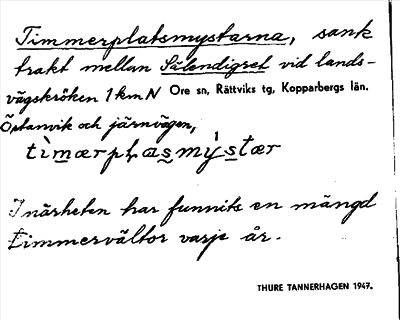 Timmerplatsmystarna, sank
trakt mellan Sälendigret vid lands-
vägskröken 1 km N Ore sn, Rättviks tg, Kopparbergs län.
Östanvik och järnvägen,
I närheten har funnits en mängd
timmervältor varje år.
THURE TANNERHAGEN 1947.